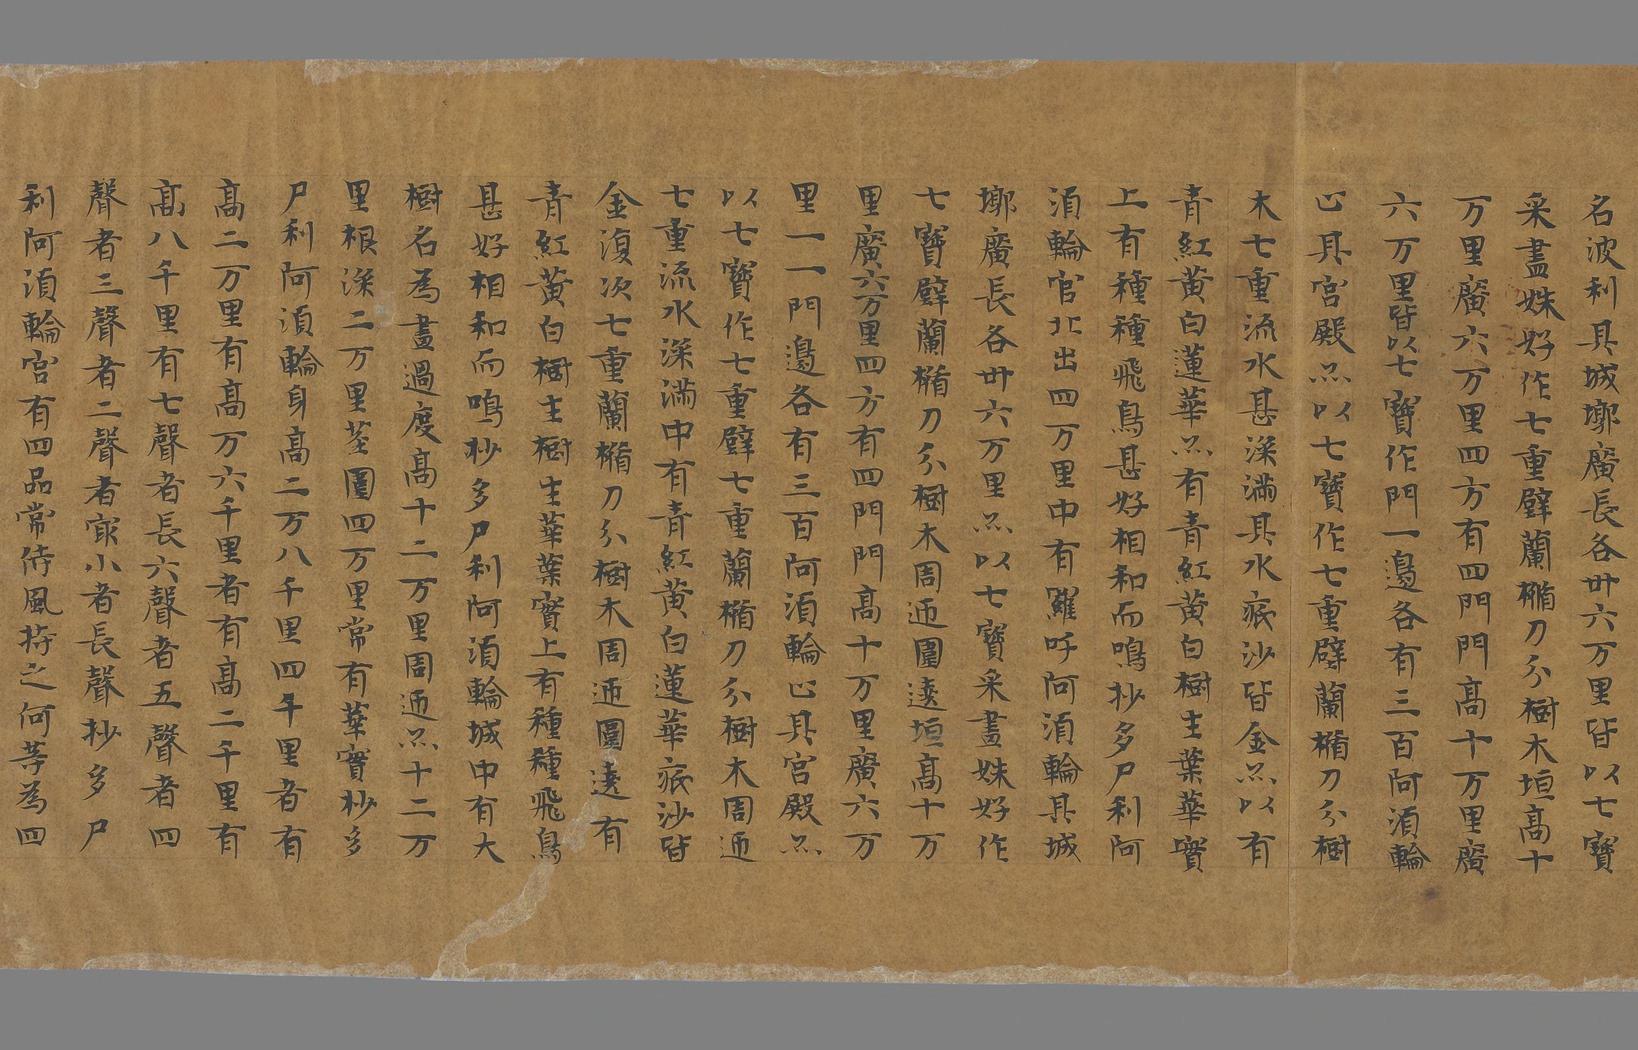 名波利具城墎廣長各卅六万里皆以七寶
采畫姝好作七重壁蘭楯刀分樹木垣高十
万里廣六万里四方有四門門高十万里廣
六万里皆以七寶作門一邊各有三百阿湏輪
止具宮殿亦以七寶作七重壁蘭楯刀分樹
木七重流水甚深滿其水底沙皆金亦以有
青紅黃白蓮華亦有青紅黃白樹生葉華實
上有種種飛鳥甚好相和而鳴抄多尸利阿
湏輪宮北出四万里中有羅呼阿湏輪具城
墎廣長各卅六万里亦以七寶采畫姝好作
七寶壁蘭楯刀分樹木周迊圍遶垣高十万
里廣六万里四方有四門門高十万里廣六万
里一一門邊各有三百阿湏輪止具宮殿亦
以七寶作七重壁七重蘭楯刀分樹木周迊
七重流水深滿中有青紅黃白蓮華底沙皆
金復次七重蘭楯刀分樹木周迊圍遶有
青紅黃白樹生樹生華葉實上有種種飛鳥
甚好相和而鳴抄多尸利阿湏輪城中有大
樹名為晝過度高十二万里周迊亦十二万
里根深二万里莖圍四万里常有華實抄多
尸利阿湏輪身高二万八千里四千里者有
高二万里有高万六千里者有高二千里有
高八千里有七聲者長六聲者五聲者四
聲者三聲者二聲者㝡小者長聲抄多尸
利阿湏輪宮有四品常侍風持之何等為四